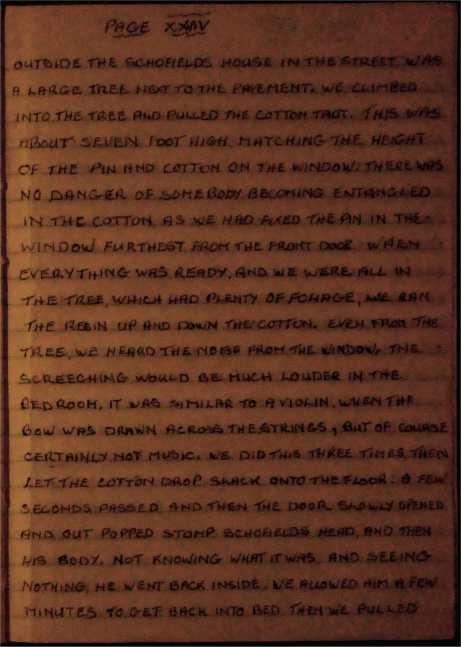 PAGE XXXIV
OUTSIDE THE SCHOFIELDS HOUSE IN THE STREET, WAS
A LARGE TREE NEXT TO THE PAVEMENT. WE CLIMBED
INTO THE TREE AND PULLED THE COTTON TAUT. THIS WAS
ABOUT SEVEN FOOT HIGH, MATCHING THE HEIGHT
OF THE PIN AND COTTON ON THE WINDOW. THERE WAS
NO DANGER OF SOMEBODY BECOMING ENTANGLED
IN THE COTTON, AS WE HAD FIXED THE PIN IN THE
WINDOW FURTHEST FROM THE FRONT DOOR. WHEN
EVERYTHING WAS READY, AND WE WERE ALL IN
THE TREE, WHICH HAD PLENTY OF FOLIAGE, WE RAN
THE RESIN UP AND DOWN THE COTTON. EVEN FROM THE
TREE, WE HEARD THE NOISE FROM THE WINDOW. THE
SCREECHING WOULD BE MUCH LOUDER IN THE
BEDROOM. IT WAS SIMILAR TO A VIOLIN, WHEN THE
BOW WAS DRAWN ACROSS THE STRINGS, BUT OF COURSE
CERTAINLY NOT MUSIC. WE DID THIS THREE TIMES, THEN
LET THE COTTON DROP SLACK ONTO THE FLOOR. A FEW
SECONDS PASSED AND THEN THE DOOR SLOWLY OPENED
AND OUT POPPED STOMP SCHOFIELDS HEAD, AND THEN
HIS BODY. NOT KNOWING WHAT IT WAS, AND SEEING
NOTHING, HE WENT BACK INSIDE. WE ALLOWED HIM A FEW
MINUTES TO GET BACK INTO BED. THEN WE PULLED